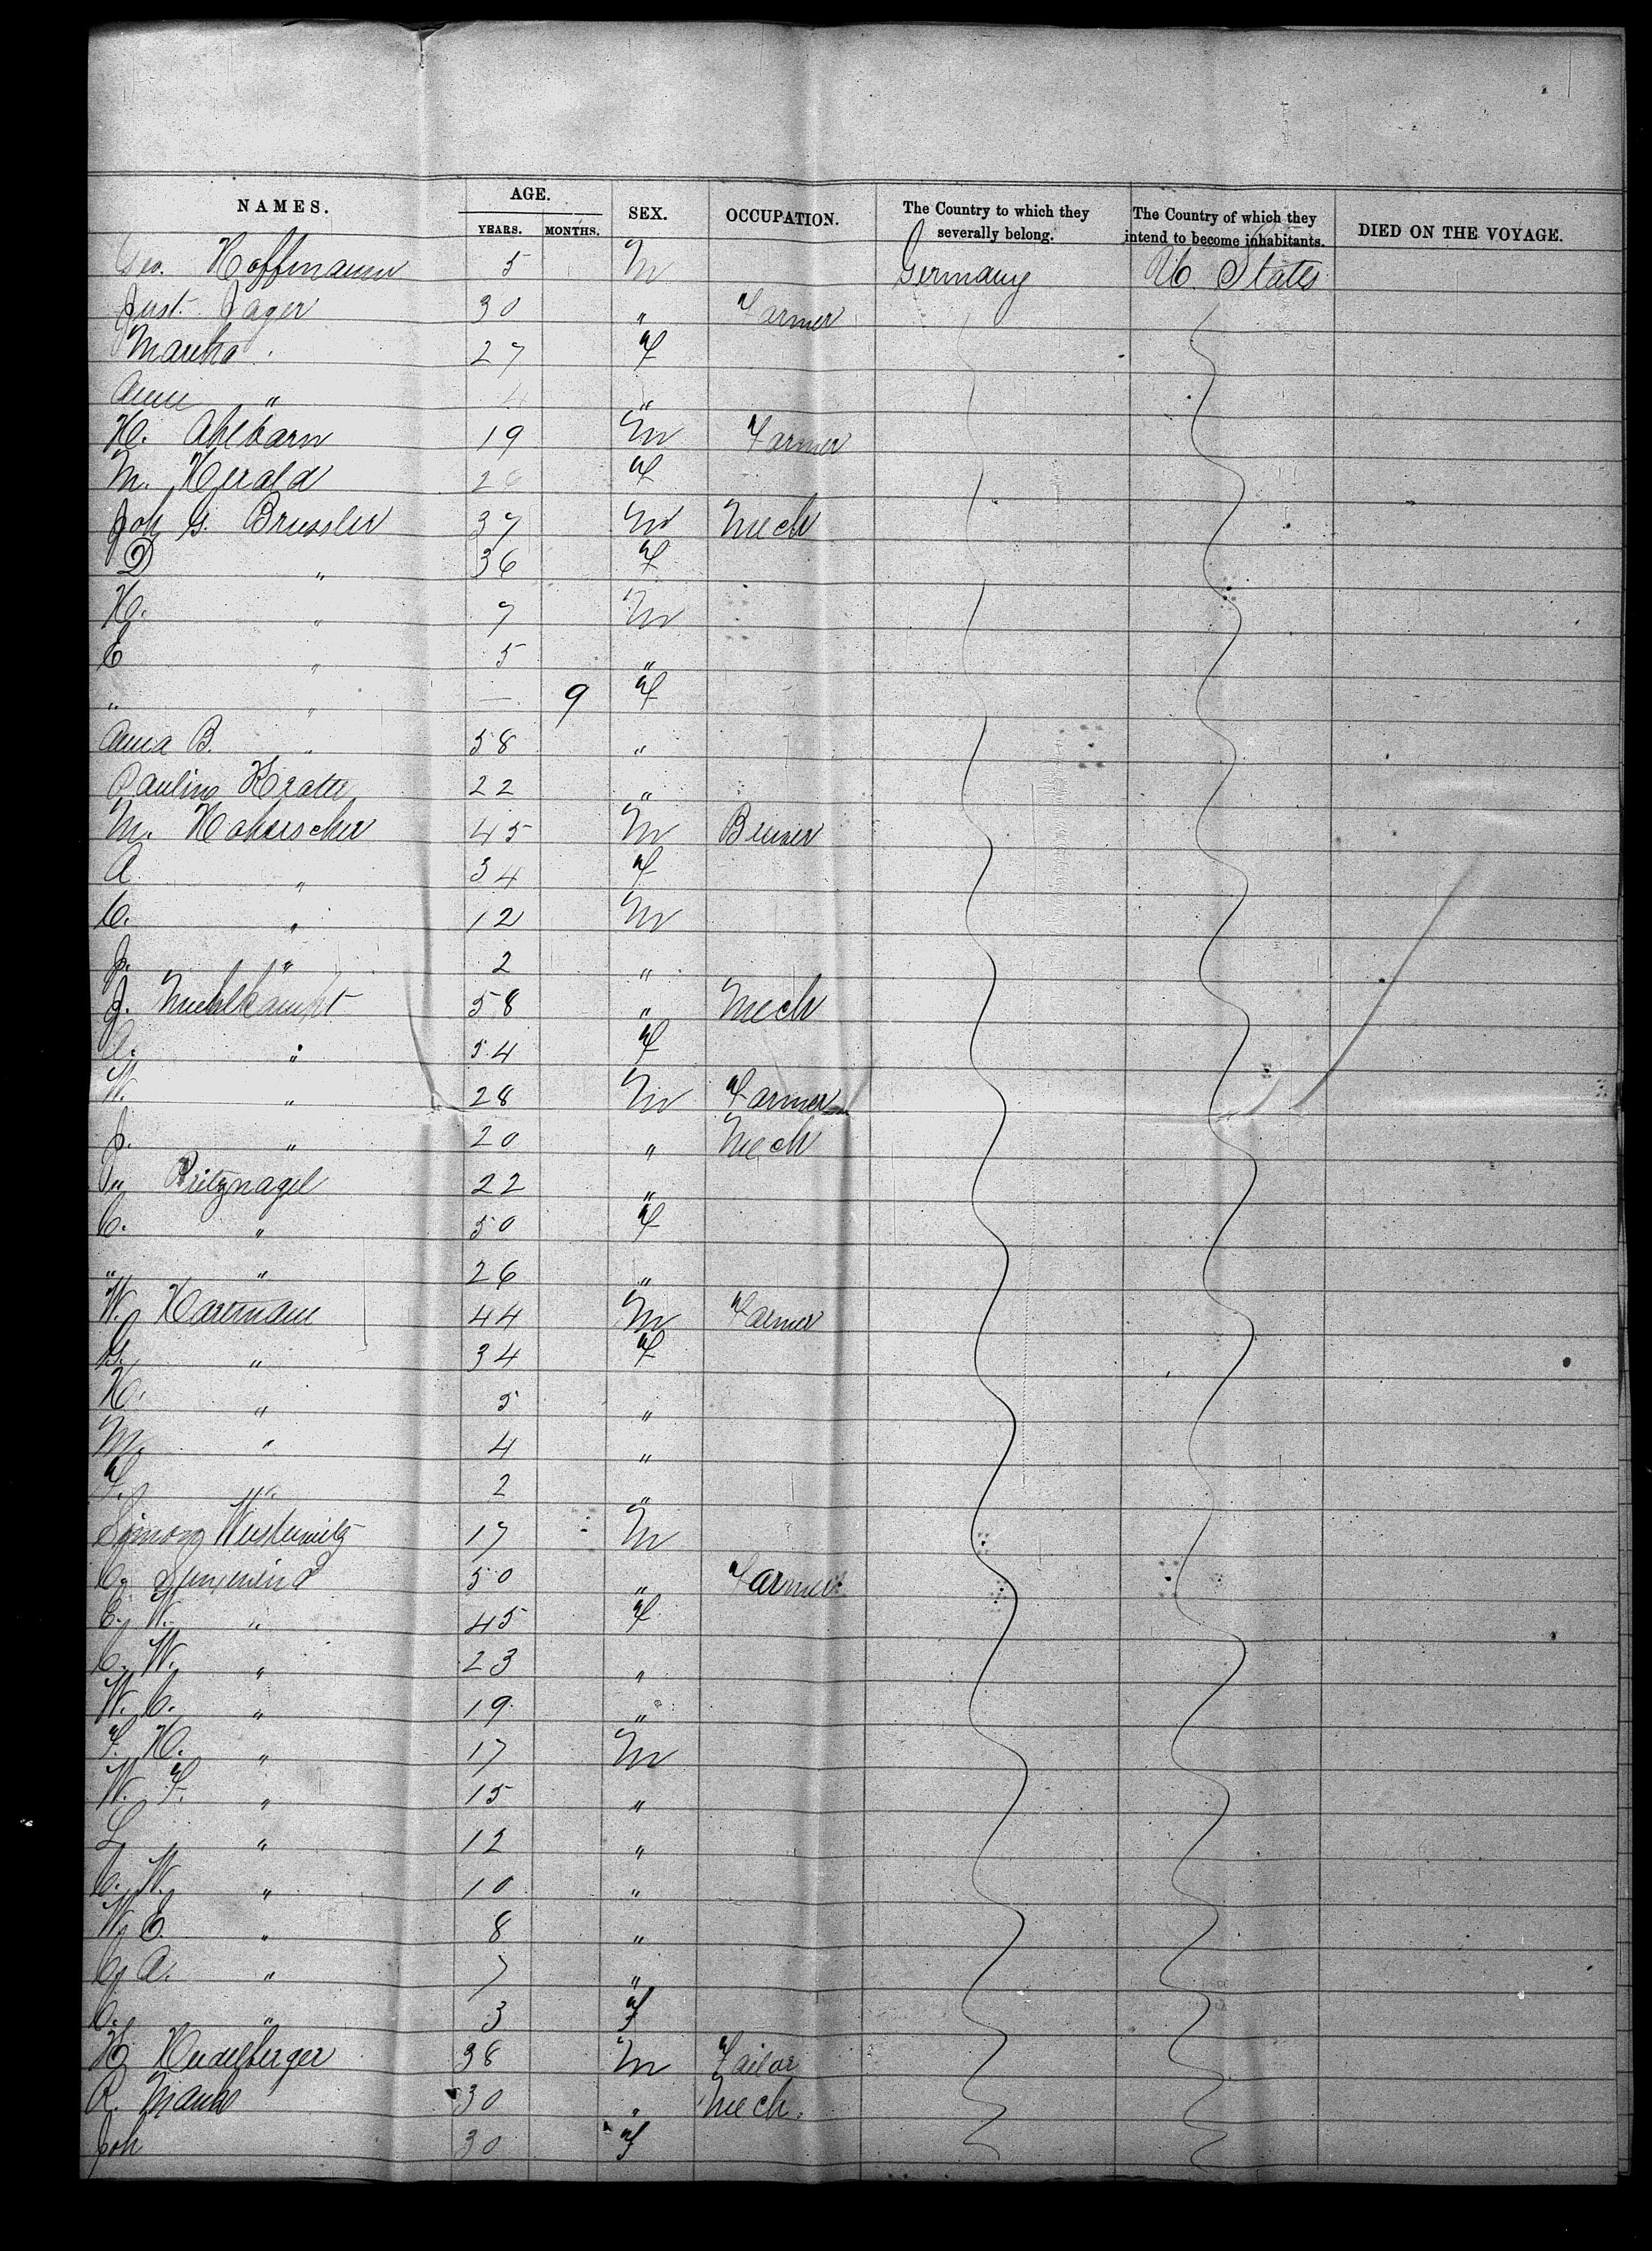 NAMES. AGE. SEX. OCCUPATION. The Country to which they severally belong. The Country of which they intend to become inhabitants. DIED ON THE VOYAGE.
YEARS. MONTHS.
Geo. Hoffmann 5 M Germany U. States
Just. Jager 30 " Farmer
Martha 27 F
Anne " 4 "
H. Ahlborn 19 M Farmer
M. Herald 20 F
Joh G. Bressler 37 M Mech
D " 36 F
H. " 7 M
E " 5 "
" " — 9 F
Anna B. " 58 "
Pauline 22 "
M. 45 M
A " 34 F
C. " 12 M
J. " 2 "
J. 58 " Mech
C. " 54 F
W. " 28 M Farmer
J. " 20 " Mech
Pritznagel 22 "
C. " 50 F
" " 26 "
W. Hartmann 44 M Farmer
G. " 34 F
H. " 5 "
M. " 4 "
F. " 2 "
Simon 17 M
C. 50 " Farmer
E. W. " 45 F
C. W. " 23 "
W. C. " 19 "
F. H. " 17 M
W. F. " 15 "
L " 12 "
C. W. " 10 "
W. E. " 8 "
C. A. " 7 "
C. " 3 F
H. Heidelberger 38 M Tailor
R. 30 " Mech.
Joh 30 F